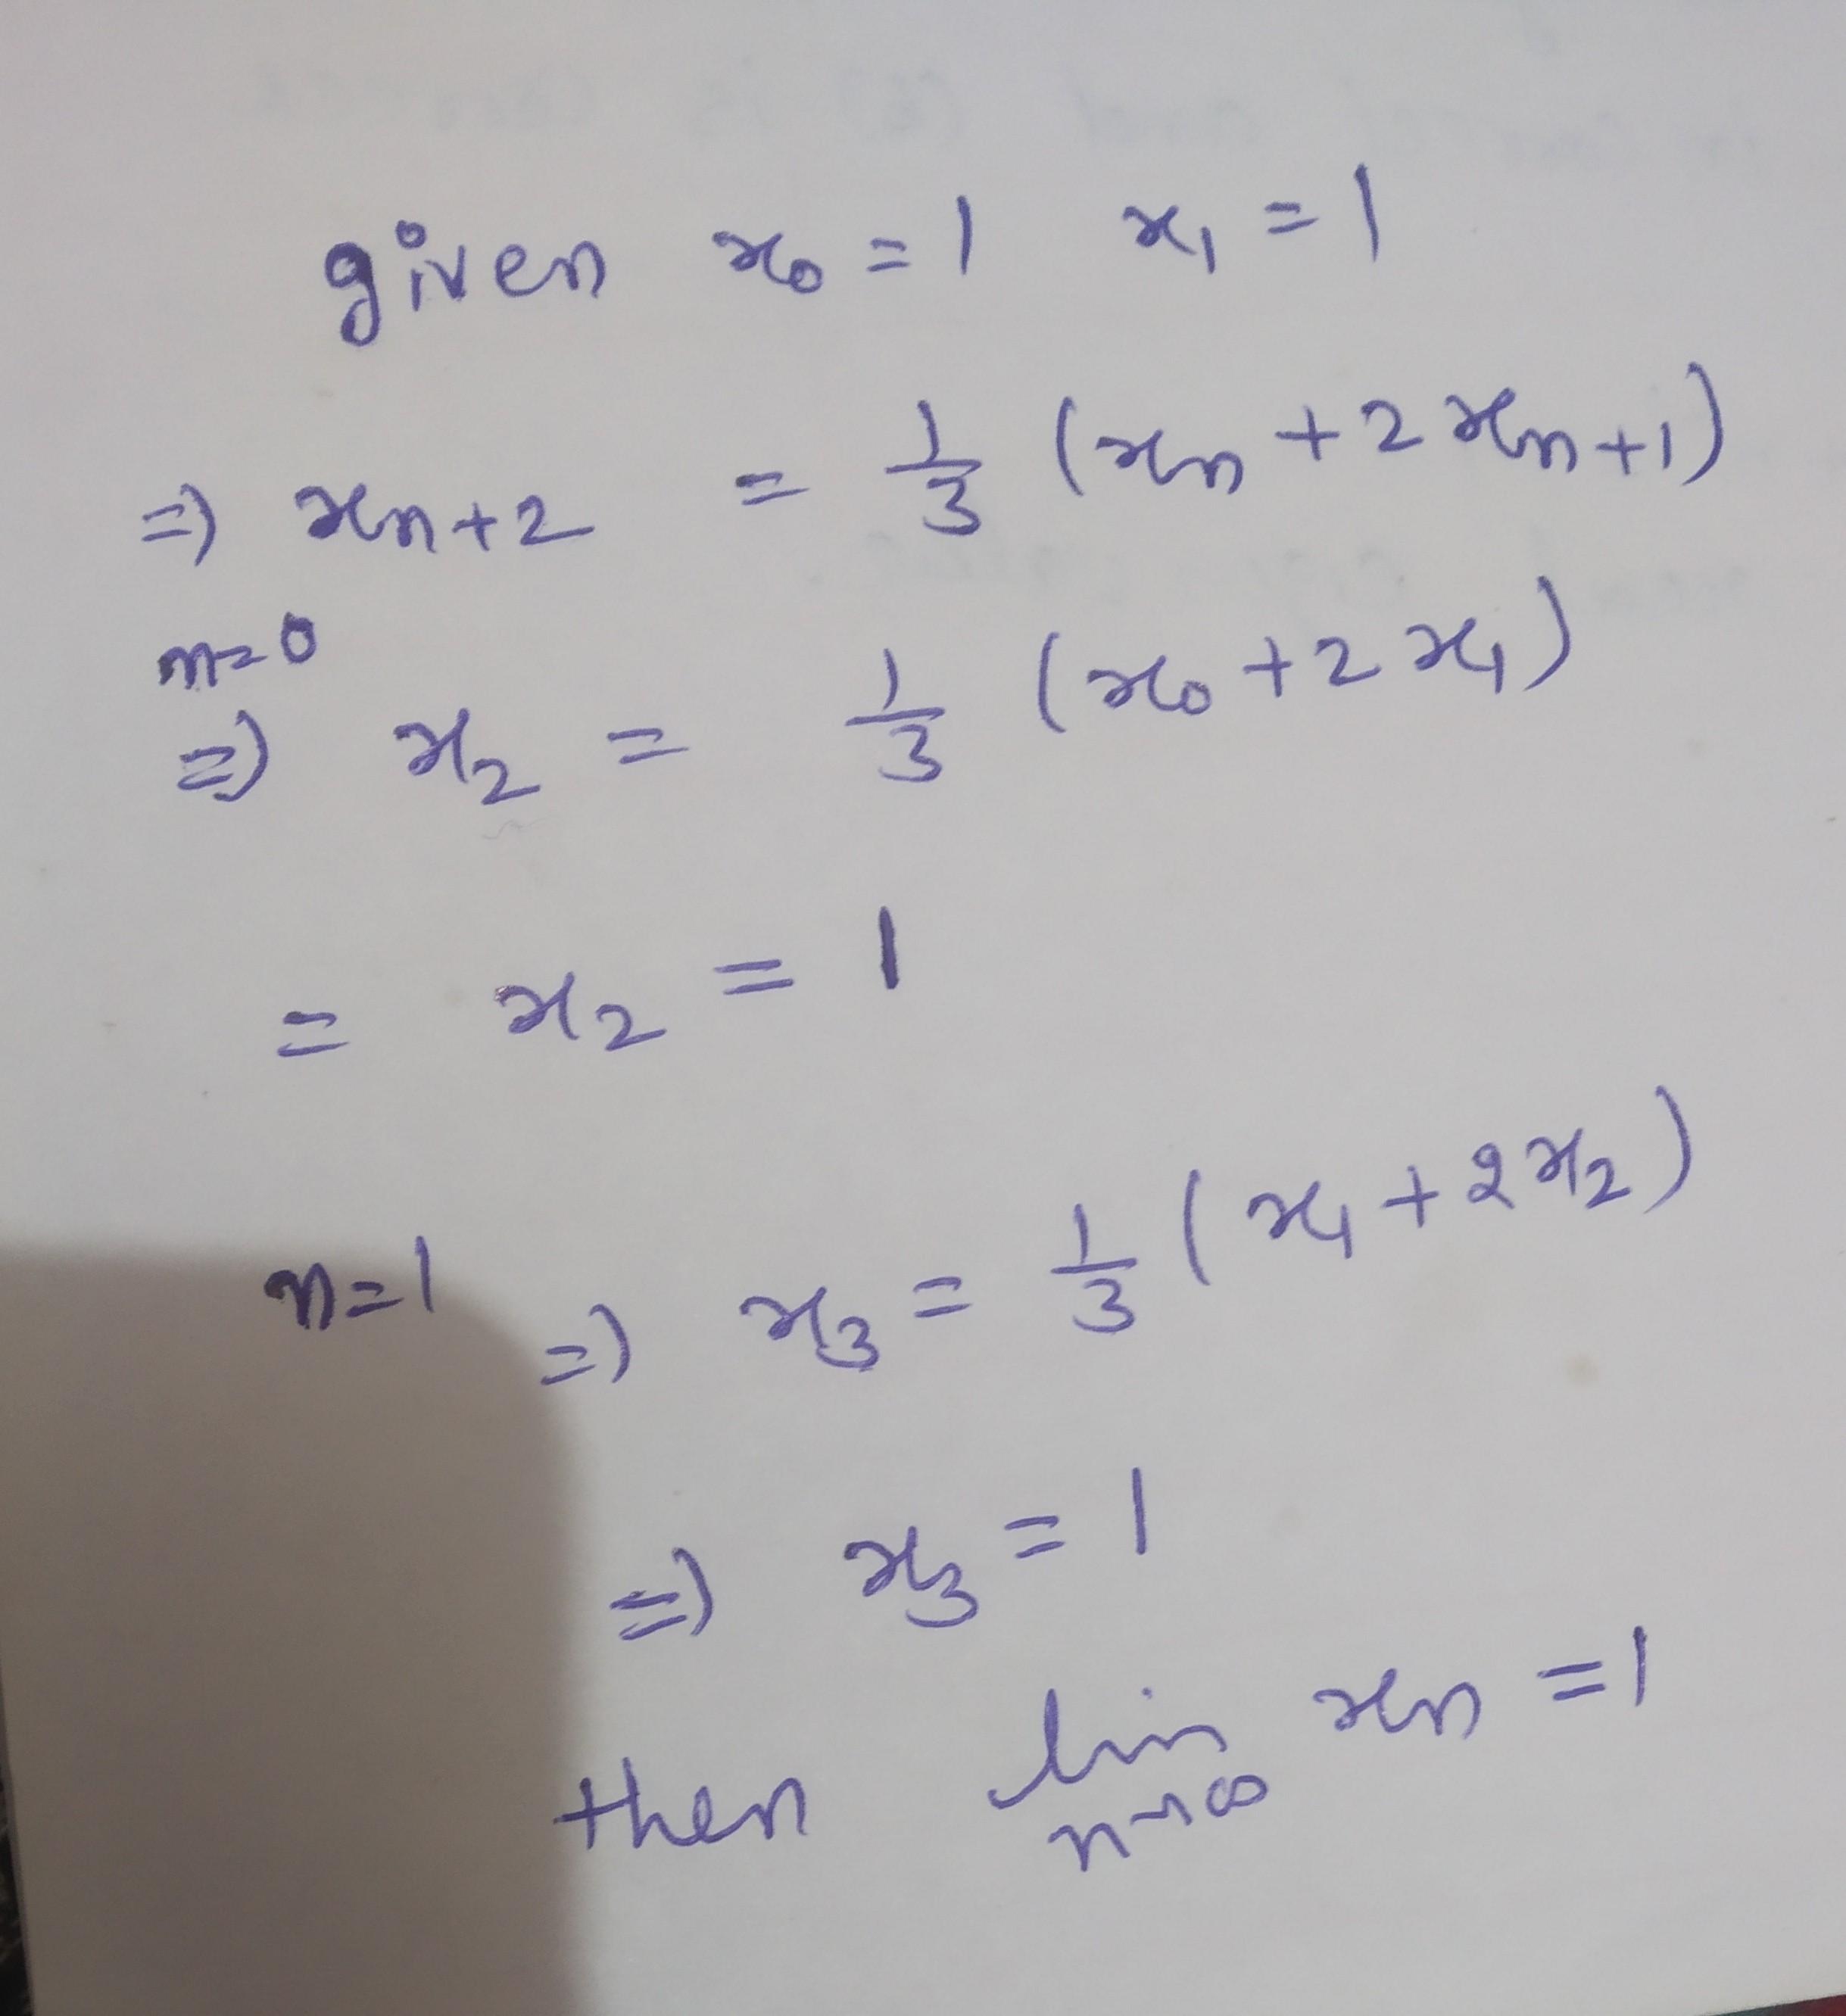 given x₀ = 1 x₁ = 1
⇒ xn+2 = 1/3 (xn + 2xn+1)
n=0
⇒ x₂ = 1/3 (x₀ + 2x₁)
= x₂ = 1
n=1 ⇒ x₃ = 1/3 (x₁ + 2x₂)
⇒ x₃ = 1
then lim n→∞ xn = 1